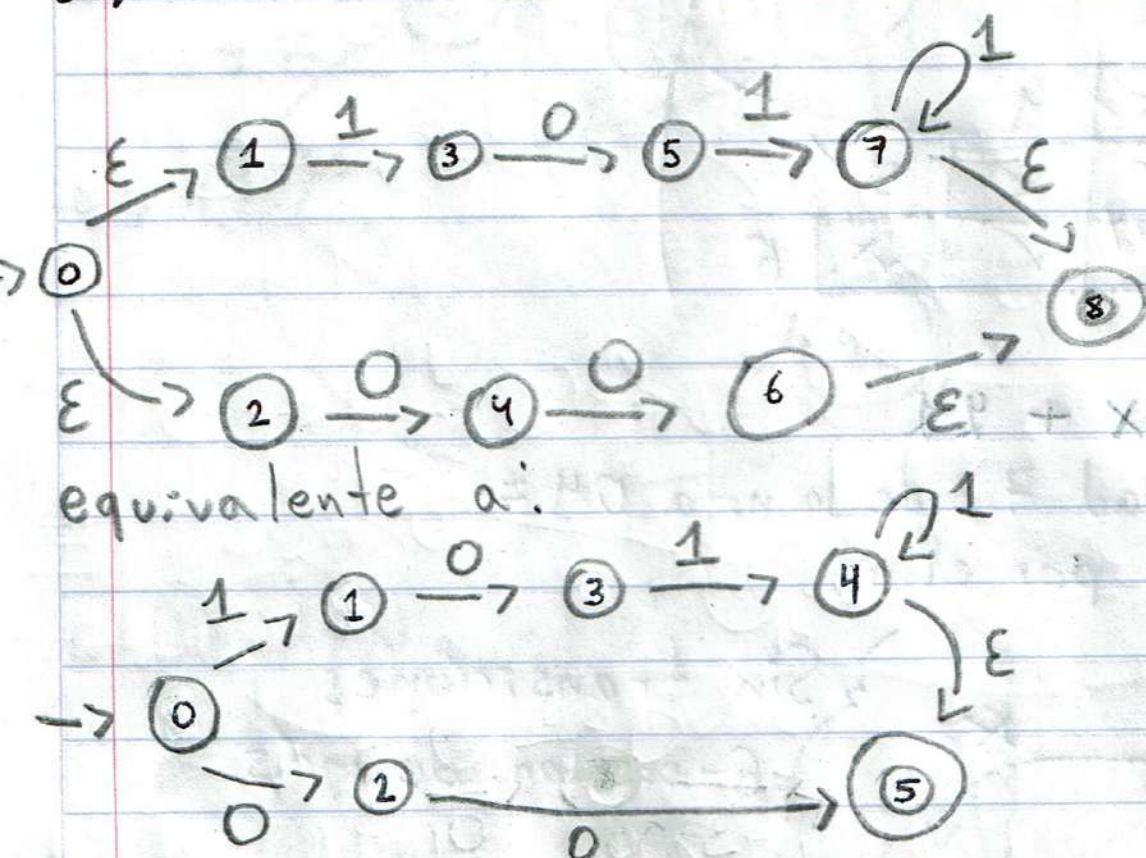 1
ε 1 1 3 0 5 1 7 ε
0
8
ε 2 0 4 0 6 ε
x + 9
equivalente a:
1
1 1 0 3 1 4 ε
0
0 2 0 5